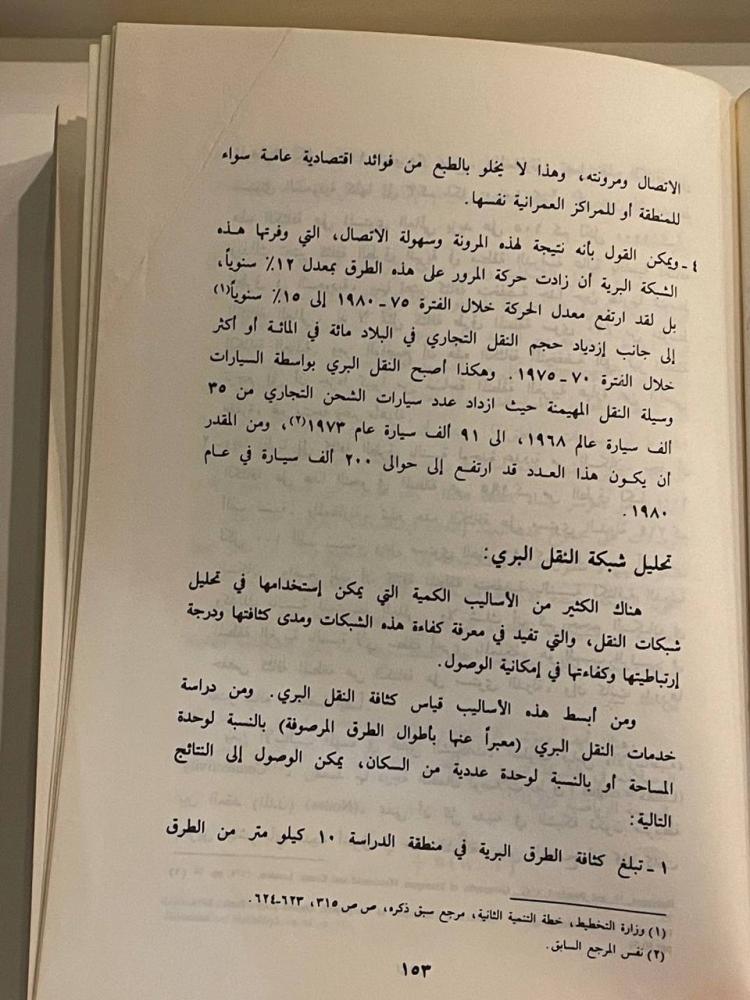 الاتصال ومرونته، وهذا لا يخلو بالطبع من فوائد اقتصادية عامة سواء
للمنطقة أو للمراكز العمرانية نفسها.
٤ - ويمكن القول بأنه نتيجة لهذه المرونة وسهولة الاتصال، التي وفرتها هذه
الشبكة البرية أن زادت حركة المرور على هذه الطرق بمعدل ١٢٪ سنوياً،
بل لقد ارتفع معدل الحركة خلال الفترة ٧٥ - ١٩٨٠ إلى ١٥٪ سنوياً(١)
إلى جانب إزدياد حجم النقل التجاري في البلاد مائة في المائة أو أكثر
خلال الفترة ٧٠ - ١٩٧٥. وهكذا أصبح النقل البري بواسطة السيارات
وسيلة النقل المهيمنة حيث ازداد عدد سيارات الشحن التجاري من ٣٥
ألف سيارة عالم ١٩٦٨، الى ٩١ ألف سيارة عام ١٩٧٣(٢)، ومن المقدر
أن يكون هذا العدد قد ارتفع إلى حوالى ٢٠٠ ألف سيارة في عام
١٩٨٠.
تحليل شبكة النقل البري:
هناك الكثير من الأساليب الكمية التي يمكن إستخدامها في تحليل
شبكات النقل، والتي تفيد في معرفة كفاءة هذه الشبكات ومدى كثافتها ودرجة
إرتباطيتها وكفاءتها في إمكانية الوصول.
ومن أبسط هذه الأساليب قياس كثافة النقل البري. ومن دراسة
خدمات النقل البري (معبراً عنها بأطوال الطرق المرصوفة) بالنسبة لوحدة
المساحة أو بالنسبة لوحدة عددية من السكان، يمكن الوصول إلى النتائج
التالية:
١ - تبلغ كثافة الطرق البرية في منطقة الدراسة ١٠ كيلو متر من الطرق
(١) وزارة التخطيط، خطة التنمية الثانية، مرجع سبق ذكره، ص ص ٣١٥، ٦٢٣-٦٢٤.
(٢) نفس المرجع السابق.
١٥٣